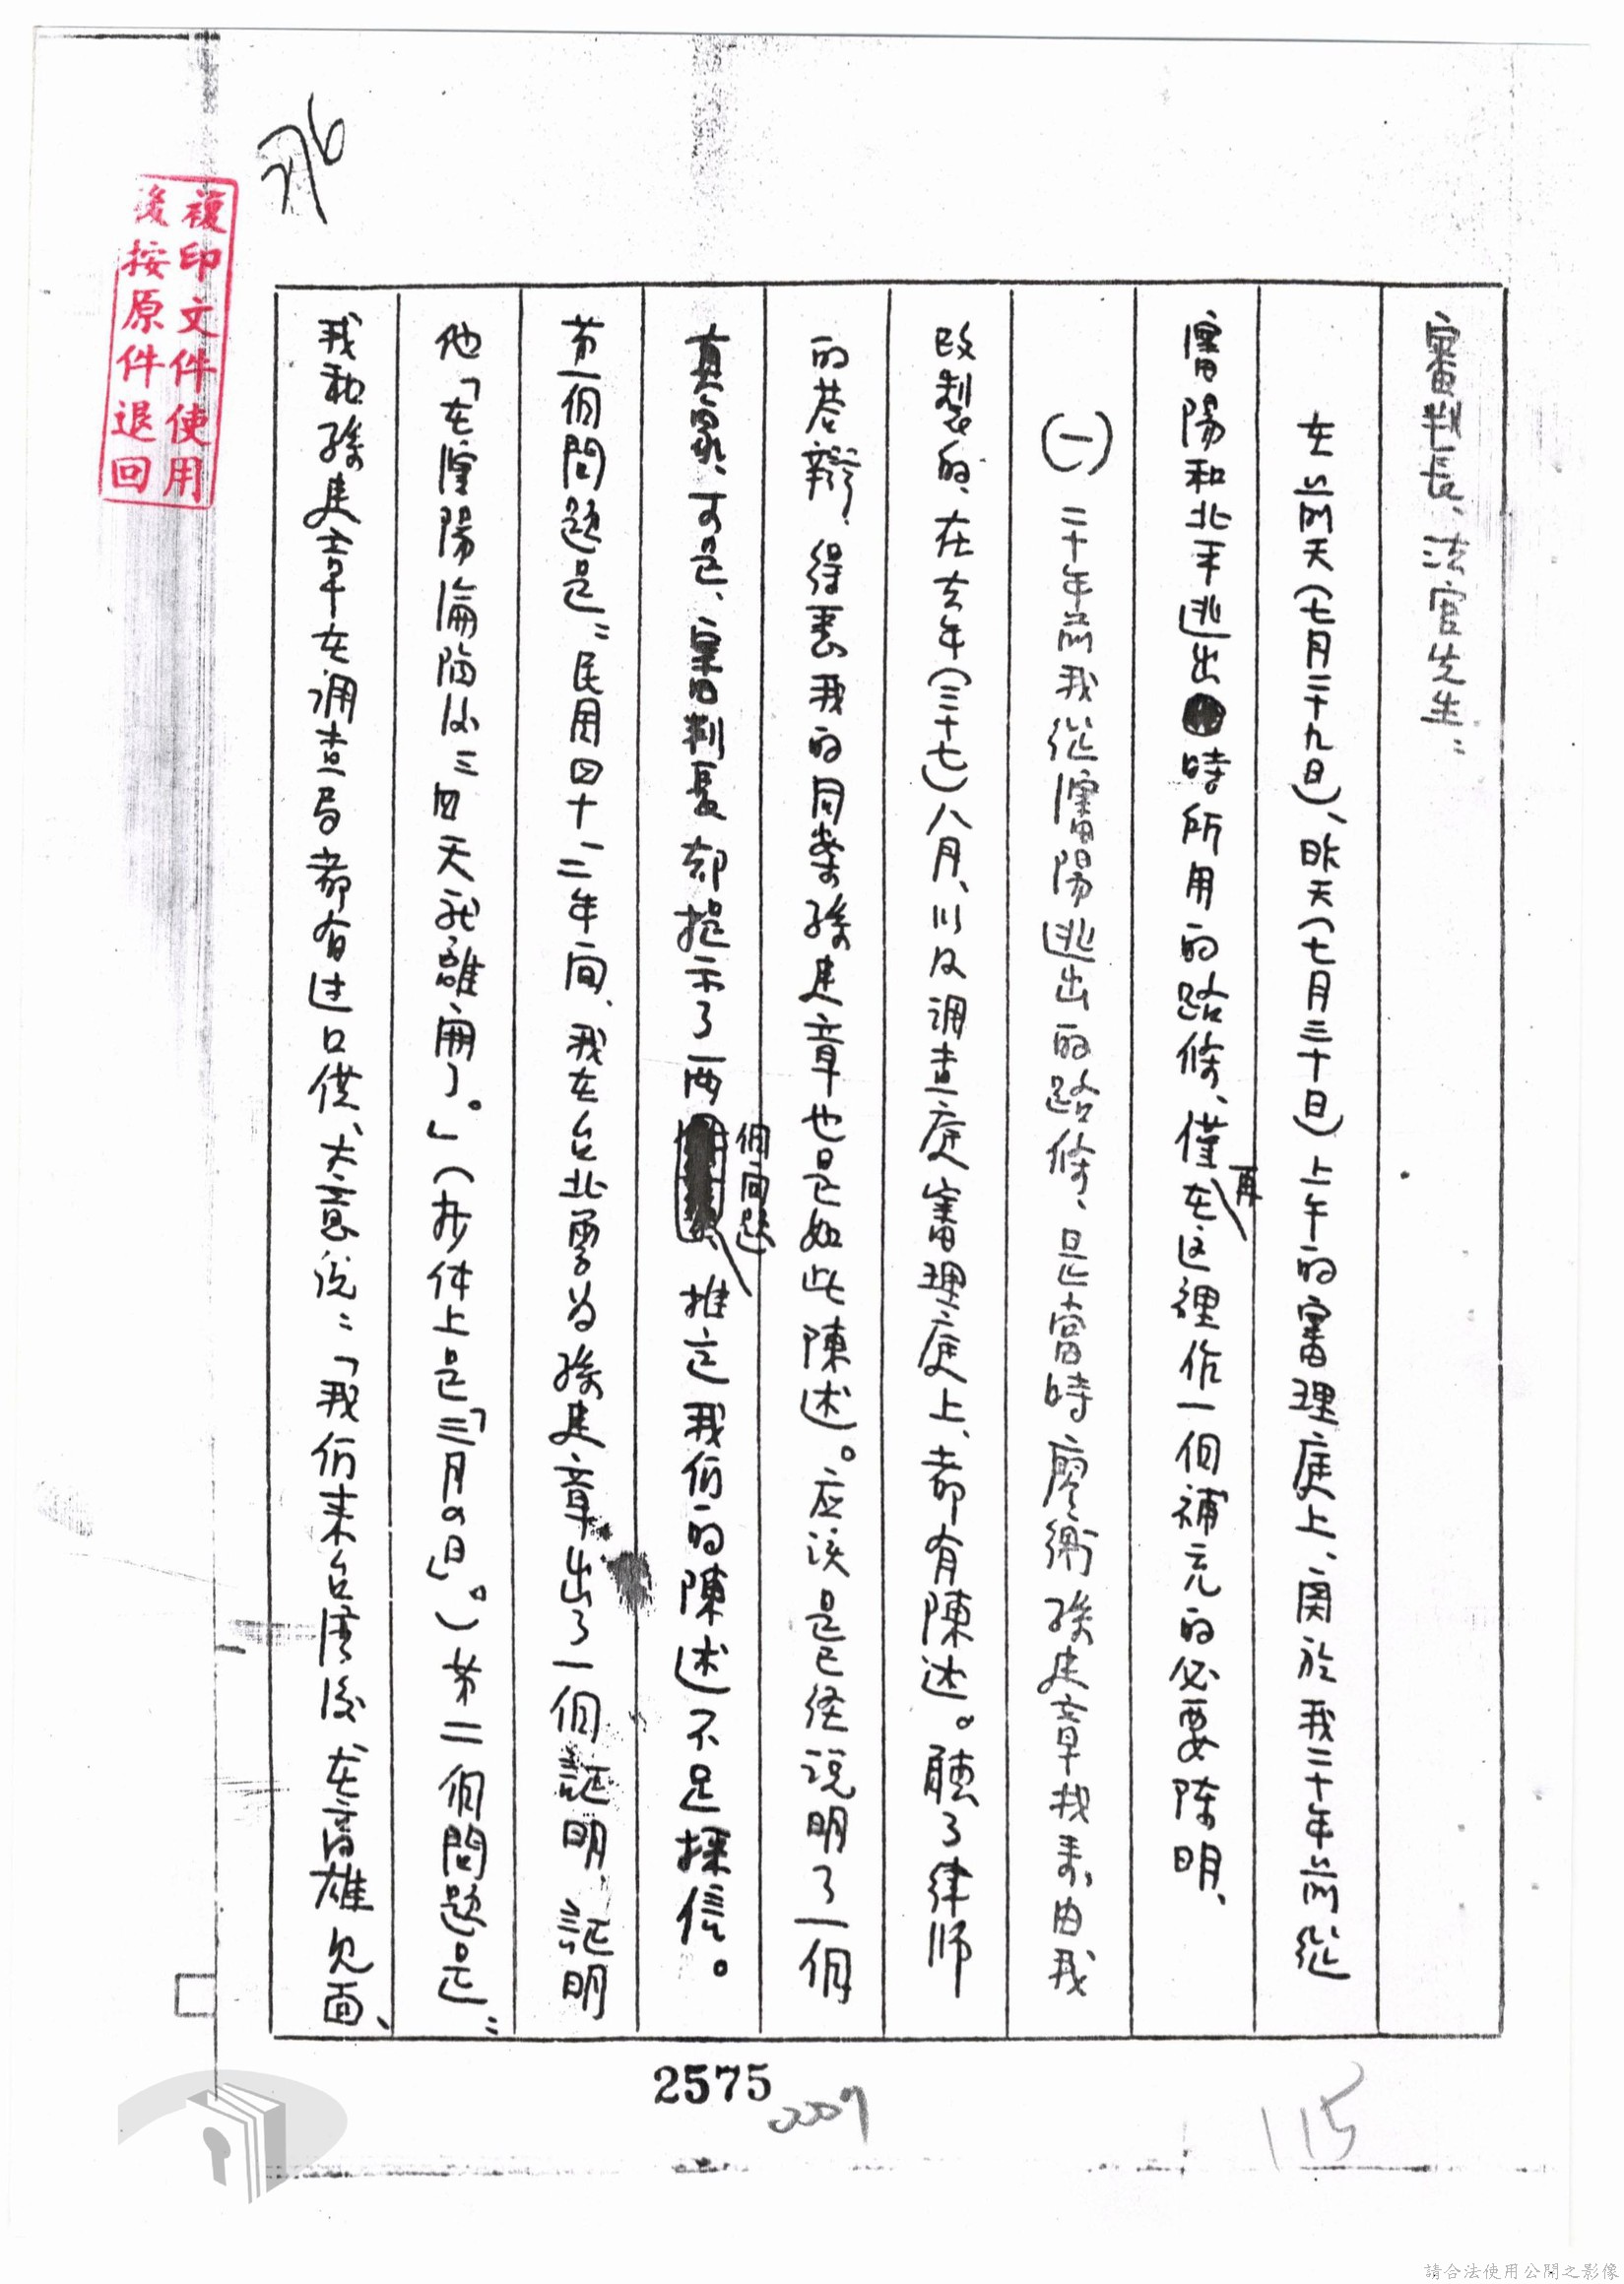 審判長、法官先生：
在前天（七月二十九日）、昨天（七月三十日）上午的審理庭上、関於我二十年前從
瀋陽和北平逃出時所用的路條、僅再在这裡作一個補充的必要陈明、
（一）二十年前我從瀋陽逃出的路條、是當時廖衡孫建章找來、由我
改製的、在去年（五十七）八月、以及調查庭審理庭上、都有陳述。聽了律師
的答辯、得悉我的同案孫建章也是如此陳述。应该是已经説明了一個
真象、可是、審判長却提示了兩個問題、推定我们的陳述不足採信。
第一個問題是：民国四十一、二年间、我在台北曾为孫建章出了一個証明、証明
他「在瀋陽淪陷後三四天就離開了。」（抄件上是「三月四日」。）第二個問題是：
我和孫建章在调查局都有过口供、大意说：「我们来台湾後在高雄见面、
複印文件使用
後按原件退回
2575
115
請合法使用公開之影像